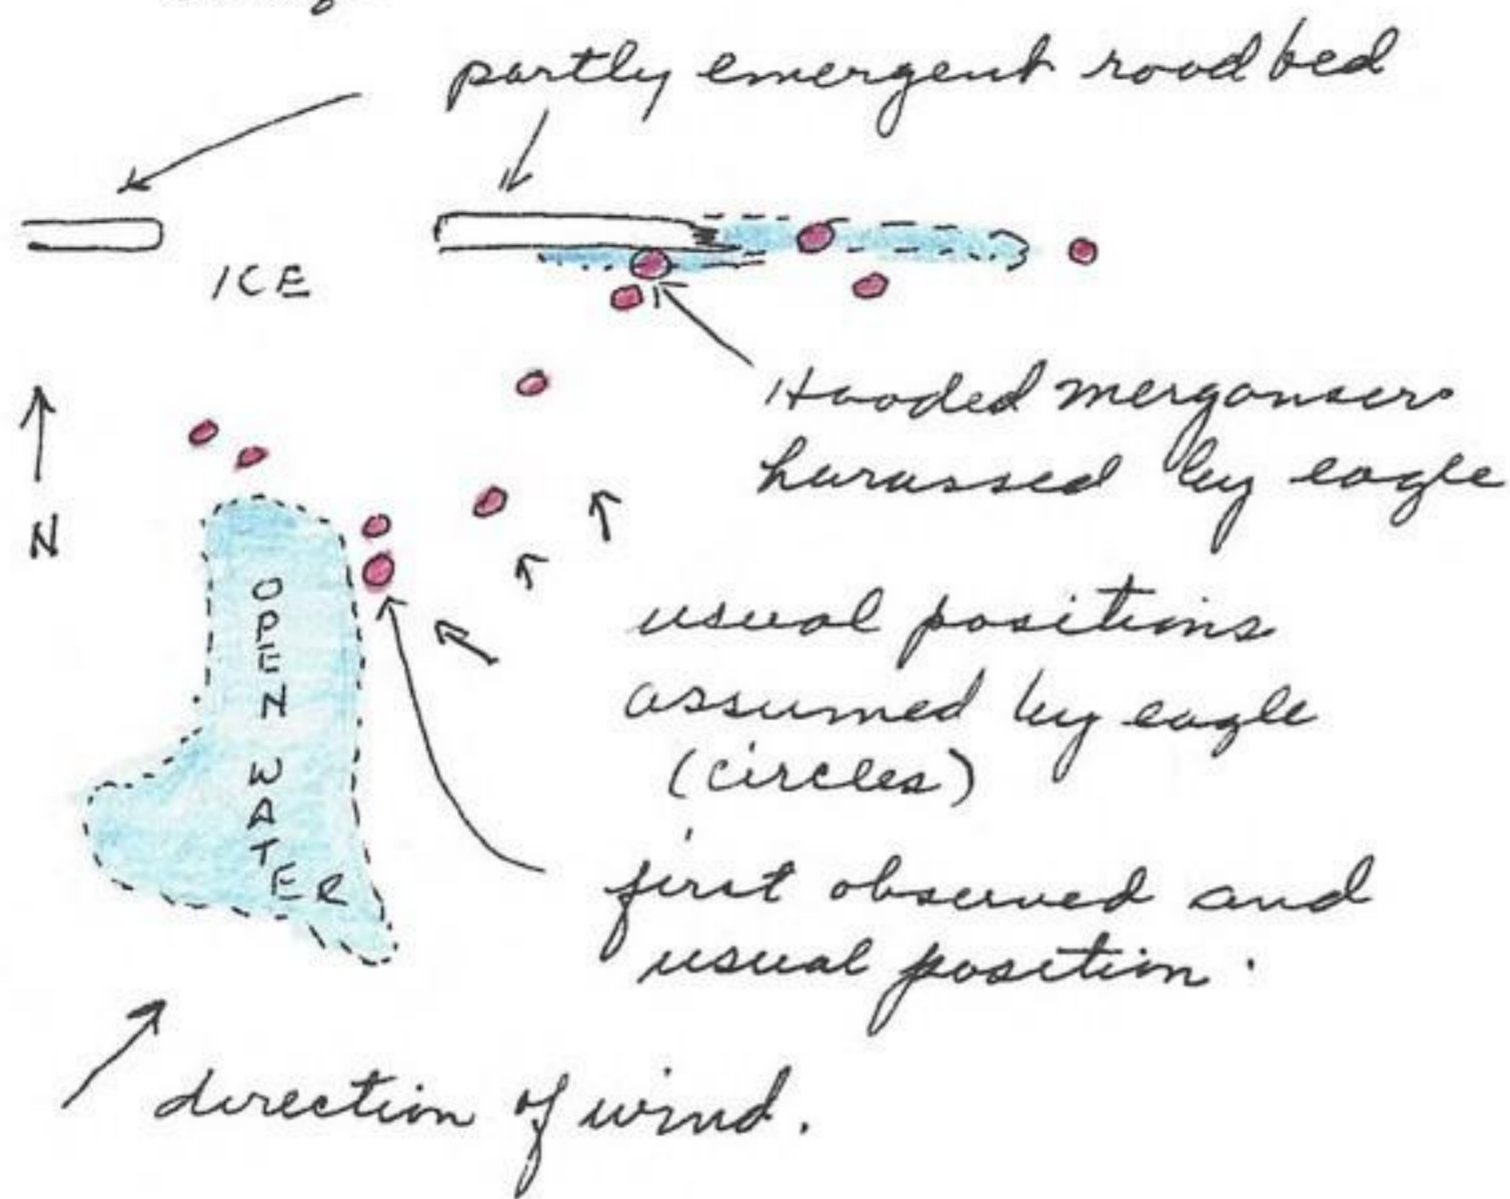 partly emergent roadbed
ICE
Hooded mergansers
harassed by eagle
N
usual positions
assumed by eagle
(circles)
OPEN WATER
first observed and
usual position.
direction of wind.